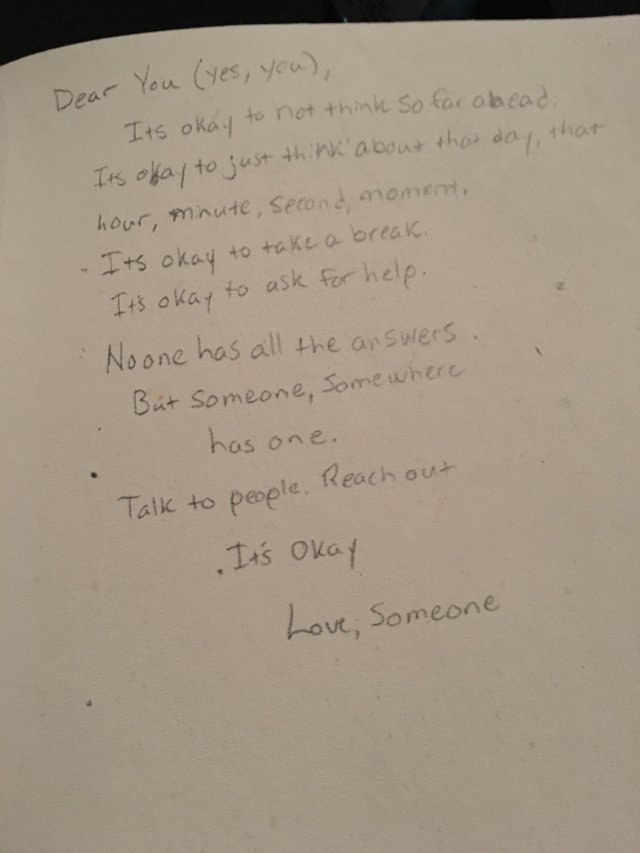 Dear You (yes, you),
Its okay to not think so far ahead.
Its okay to just think about that day, that
hour, minute, second, moment.
Its okay to take a break.
It's okay to ask for help.
No one has all the answers.
But someone, somewhere
has one.
Talk to people. Reach out
It's Okay
Love, Someone